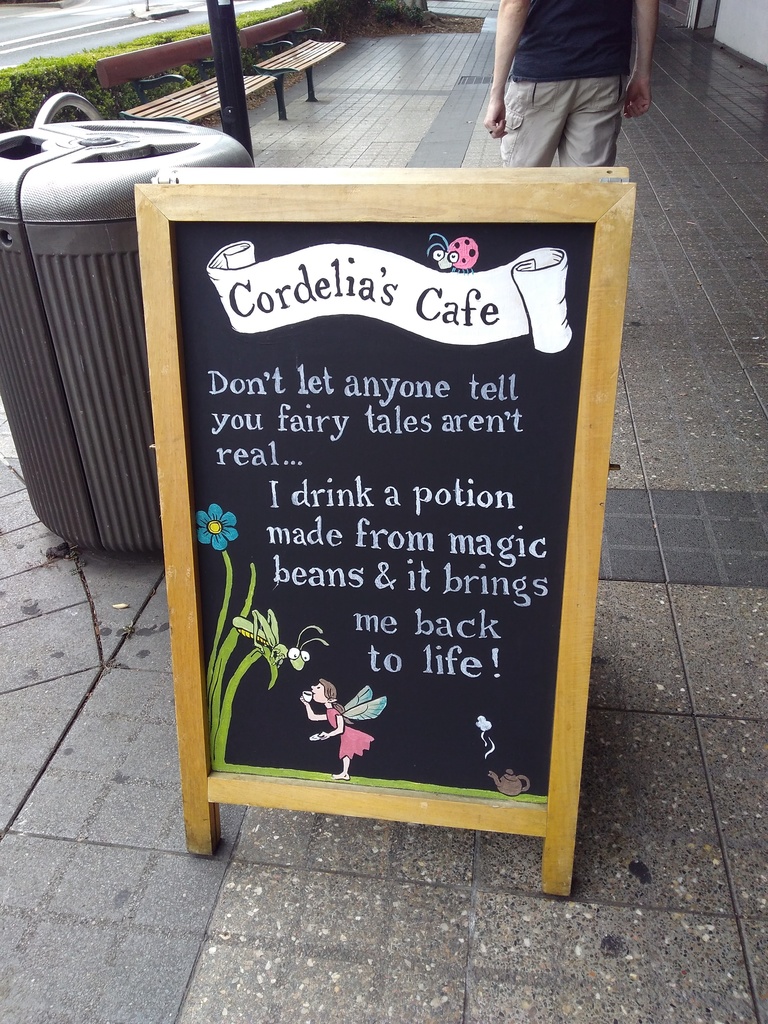 Cordelia's Cafe
Don't let anyone tell
you fairy tales aren't
real...
I drink a potion
made from magic
beans & it brings
me back
to life!